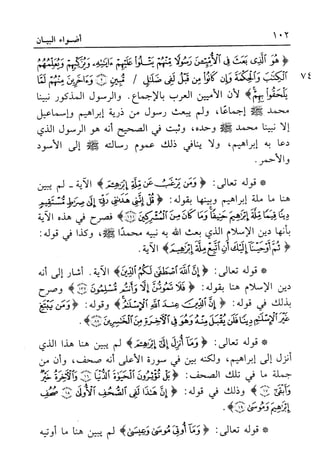 ١٠٢ أضواء البيان
﴿هُوَ الَّذِي بَعَثَ فِي الْأُمِّيِّينَ رَسُولًا مِنْهُمْ يَتْلُو عَلَيْهِمْ آيَاتِهِ وَيُزَكِّيهِمْ وَيُعَلِّمُهُمُ
٧٤ الْكِتَابَ وَالْحِكْمَةَ وَإِن كَانُوا مِن قَبْلُ لَفِي ضَلَالٍ / مُّبِينٍ ﴿٢﴾ وَآخَرِينَ مِنْهُمْ لَمَّا
يَلْحَقُوا بِهِمْ﴾ لأن الأميين العرب بالإجماع. والرسول المذكور نبينا
محمد ﷺ إجماعًا، ولم يبعث رسول من ذرية إبراهيم وإسماعيل
إلا نبينا محمد ﷺ وحده، وثبت في الصحيح أنه هو الرسول الذي
دعا به إبراهيم، ولا ينافي ذلك عموم رسالته ﷺ إلى الأسود
والأحمر.
* قوله تعالى: ﴿وَمَن يَرْغَبُ عَن مِّلَّةِ إِبْرَاهِيمَ﴾ الآية ـ لم يبين
هنا ما ملة إبراهيم وبينها بقوله: ﴿قُلْ إِنَّنِي هَدَانِي رَبِّي إِلَى صِرَاطٍ مُّسْتَقِيمٍ
دِينًا قِيَمًا مِّلَّةَ إِبْرَاهِيمَ حَنِيفًا وَمَا كَانَ مِنَ الْمُشْرِكِينَ ﴿١٦١﴾﴾ فصرح في هذه الآية
بأنها دين الإسلام الذي بعث الله به نبيه محمدًا ﷺ، وكذا في قوله:
﴿ثُمَّ أَوْحَيْنَا إِلَيْكَ أَنِ اتَّبِعْ مِلَّةَ إِبْرَاهِيمَ﴾ الآية.
* قوله تعالى: ﴿إِنَّ اللَّهَ اصْطَفَى لَكُمُ الدِّينَ﴾ الآية. أشار إلى أنه
دين الإسلام هنا بقوله: ﴿فَلَا تَمُوتُنَّ إِلَّا وَأَنتُم مُّسْلِمُونَ ﴿١٣٢﴾﴾ وصرح
بذلك في قوله: ﴿إِنَّ الدِّينَ عِندَ اللَّهِ الْإِسْلَامُ﴾ وقوله: ﴿وَمَن يَبْتَغِ
غَيْرَ الْإِسْلَامِ دِينًا فَلَن يُقْبَلَ مِنْهُ وَهُوَ فِي الْآخِرَةِ مِنَ الْخَاسِرِينَ ﴿٨٥﴾﴾.
* قوله تعالى: ﴿وَمَا أُنزِلَ إِلَى إِبْرَاهِيمَ﴾ لم يبين هنا هذا الذي
أنزل إلى إبراهيم، ولكنه بين في سورة الأعلى أنه صحف، وأن من
جملة ما في تلك الصحف: ﴿بَلْ تُؤْثِرُونَ الْحَيَاةَ الدُّنْيَا ﴿١٦﴾ وَالْآخِرَةُ خَيْرٌ
وَأَبْقَى ﴿١٧﴾﴾ وذلك في قوله: ﴿إِنَّ هَذَا لَفِي الصُّحُفِ الْأُولَى ﴿١٨﴾ صُحُفِ
إِبْرَاهِيمَ وَمُوسَى ﴿١٩﴾﴾.
* قوله تعالى: ﴿وَمَا أُوتِيَ مُوسَى وَعِيسَى﴾ لم يبين هنا ما أوتيه